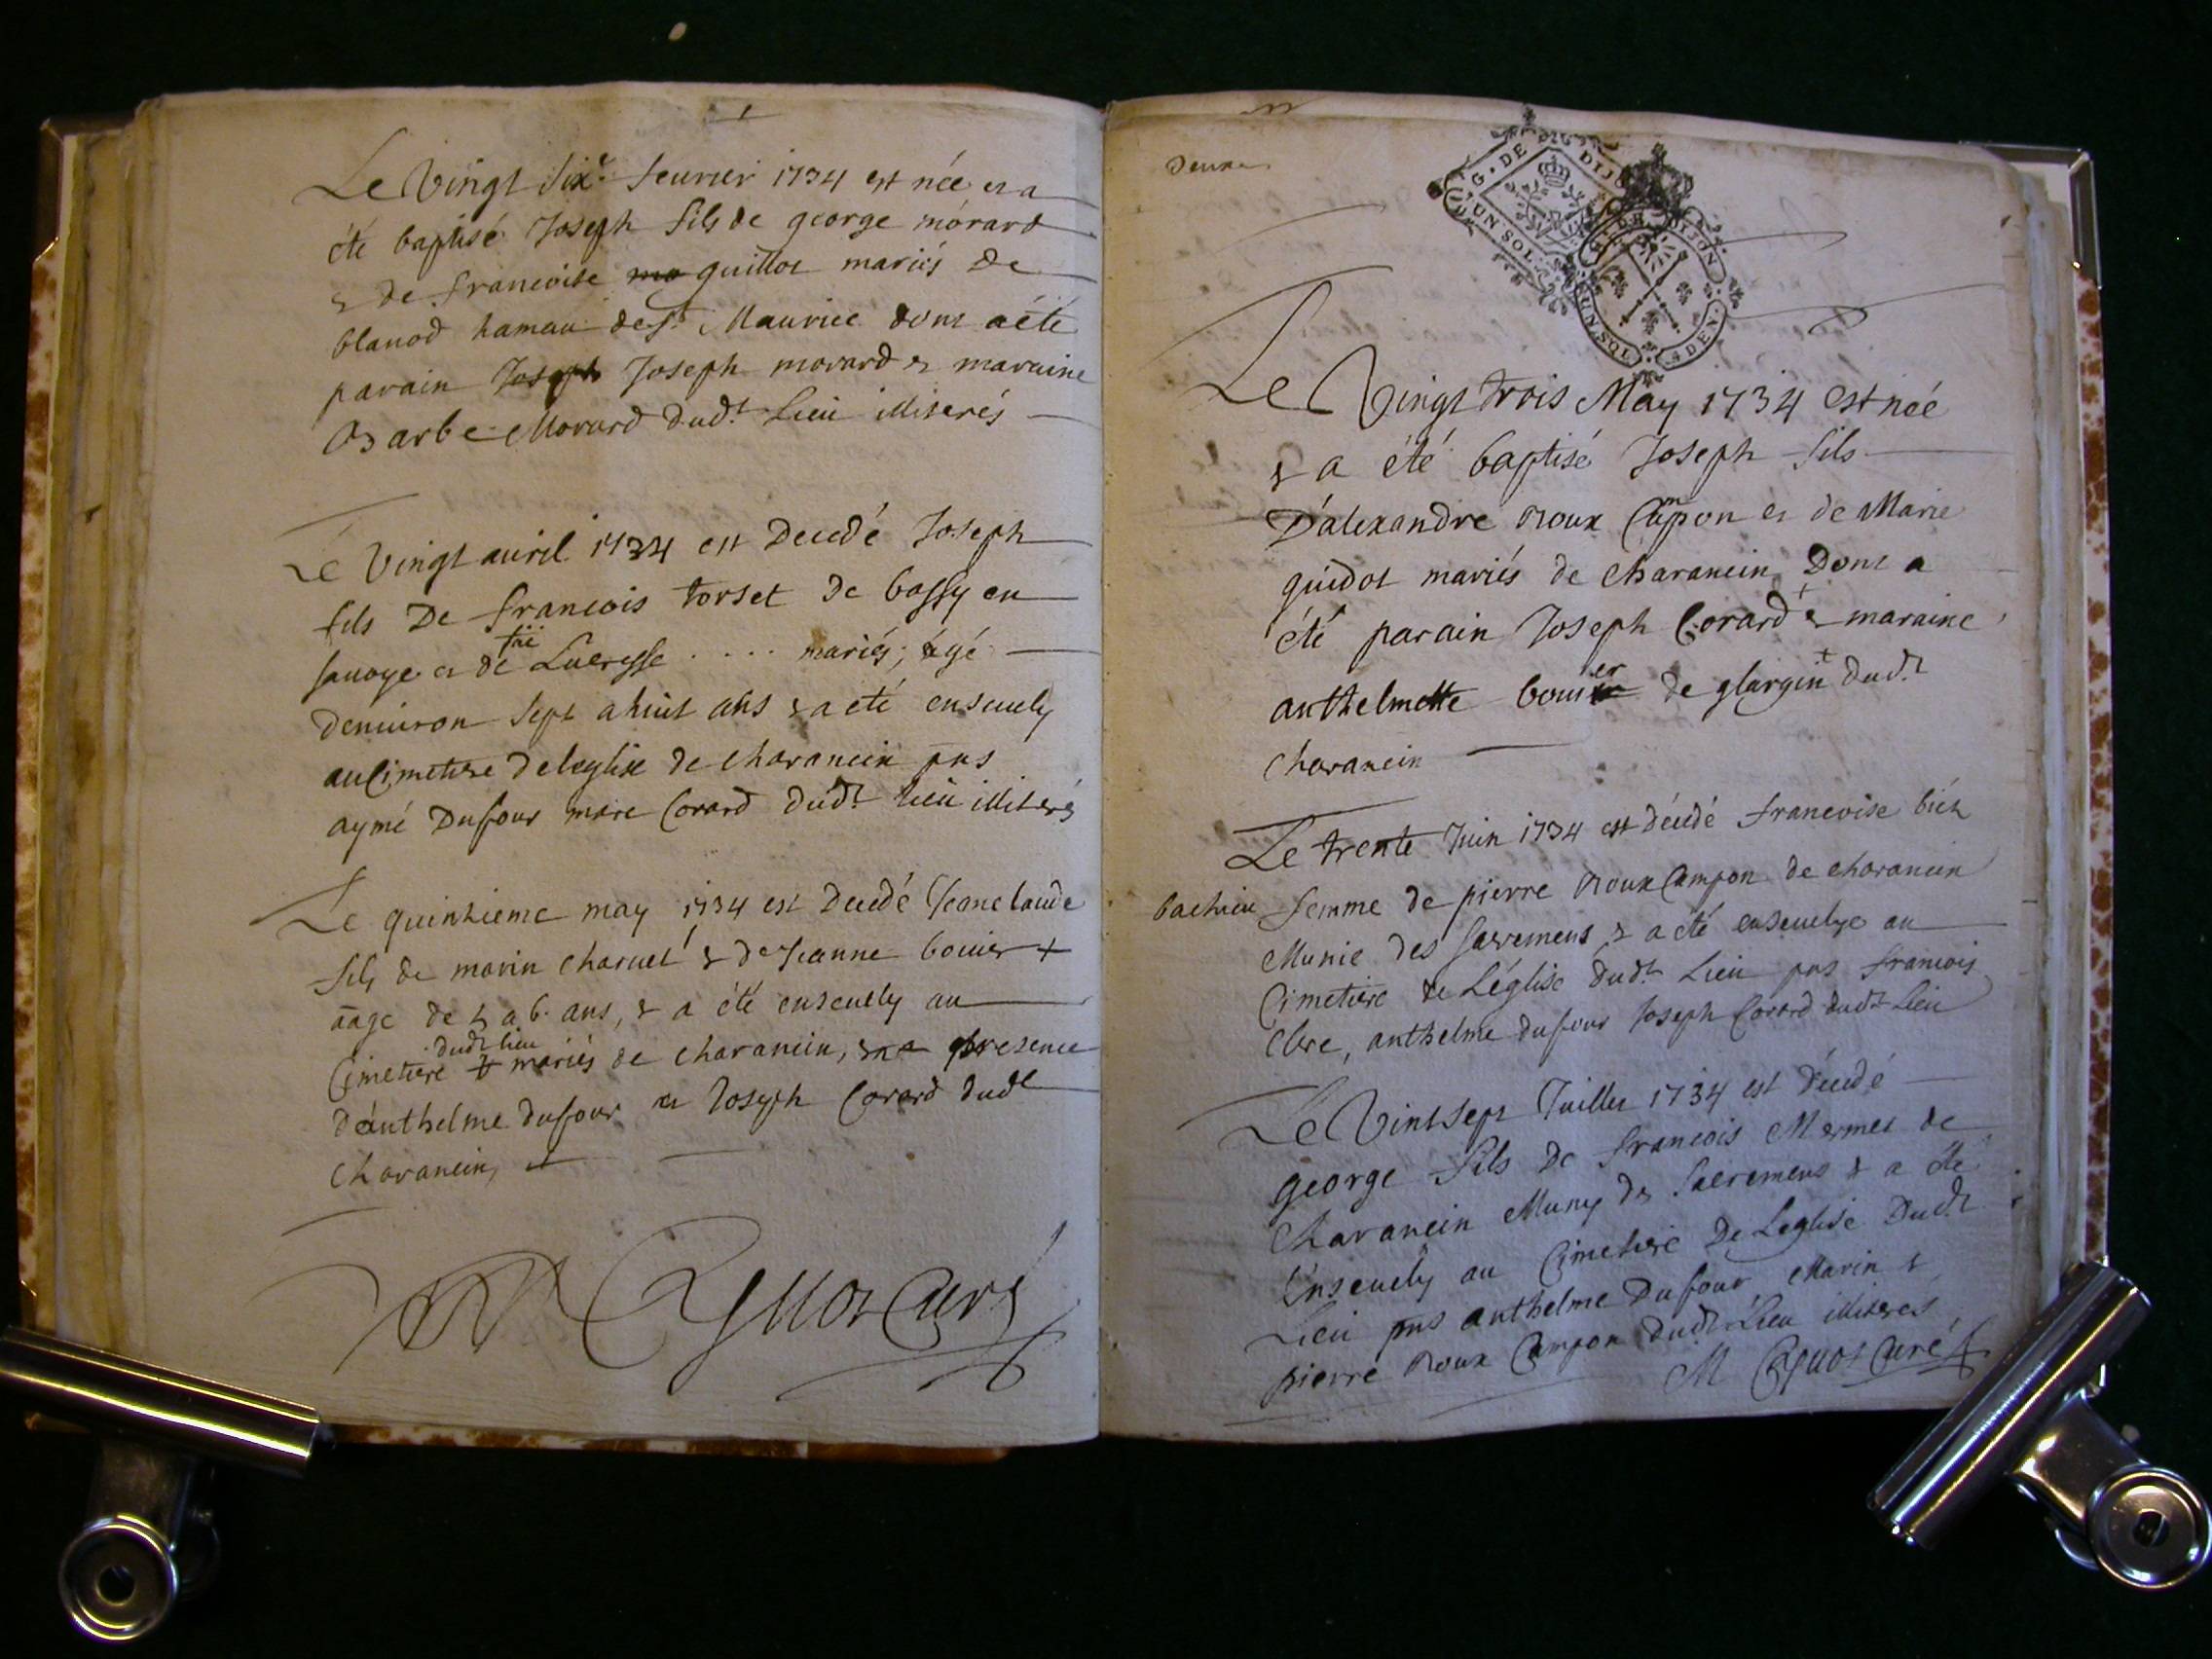 Le Vingt six.e feurier 1734 est née et a
été baptisé Joseph fils de george morard
& de francoise mo guillot mariés de
blanod hamau de st Maurice dont a été
parain Joseph Joseph morard & maraine
Barbe Morard dud.t Lieu illiterés
Le Vingt auril 1734 est Decedé Joseph
fils De francois torset de bassy en
sauoye et de Lucresse .... mariés, agé
denuiron sept a huit ans & a eté enseuely
au Cimetiere deleglise de charancin pns
aymé Dufour marc Corard dud.t lieu illiterés
Le quinzieme may 1734 est Decedé Jeanclaude
fils de marin charuet & de Jeanne bouier +
aage de 5 a 6 ans, & a été enseuely au
dud.t lieu
Cimetiere + mariés de charancin, presence
d'anthelme dufour et Joseph Corard dud.t
charancin,
M Cyuot Curé
Deux
G. DE DIJON
UN SOL
G. DE DIJON
UN. SOL. 4 DEN.
Le Vingt trois May 1734 est née
& a été baptisé Joseph fils
D'alexandre Roux Campon et de Marie
guidot mariés de charancin Dont a
été parain Joseph Corard & maraine
anthelmette bouier de glargin dud.t
charancin
Le trente Juin 1734 est décédé francoise
bachieu femme de pierre Roux Campon de charancin
Munie des sacremens & a été enseuelye au
Cimetiere de L'église dud.t Lieu pns francois
Clerc, anthelme dufour Joseph Corard dud.t Lieu
Le Vint sept Juillet 1734 est Décédé
george fils de francois Mermet de
Charancin Muny des sacremens & a été
Enseuely au Cimetiere De Leglise Dud.t
Lieu pns anthelme Dufour, Marin &
pierre Roux Campon dud.t Lieu illiterés
M Cyuot Curé